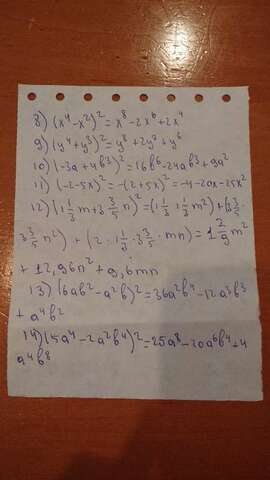 8) (x⁴-x²)²=x⁸-2x⁶+2x⁴
9) (y⁴+y³)²=y⁸+2y⁷+y⁶
10) (-3a+4b³)²=16b⁶-24ab³+9a²
11) (-2-5x)²=-(2+5x)²=-4-20x-25x²
12) (1 1/3 m+3 3/5 n)²=(1 1/3·1 1/3 m²)+(3 3/5·
3 3/5 n²)+(2·1 1/3·3 3/5·mn)=1 7/9 m²
+12,96n²+9,6mn
13) (6ab²-a²b)²=36a²b⁴-12a³b³
+a⁴b²
14) (5a⁴-2a²b⁴)²=25a⁸-20a⁶b⁴+4
a⁴b⁸